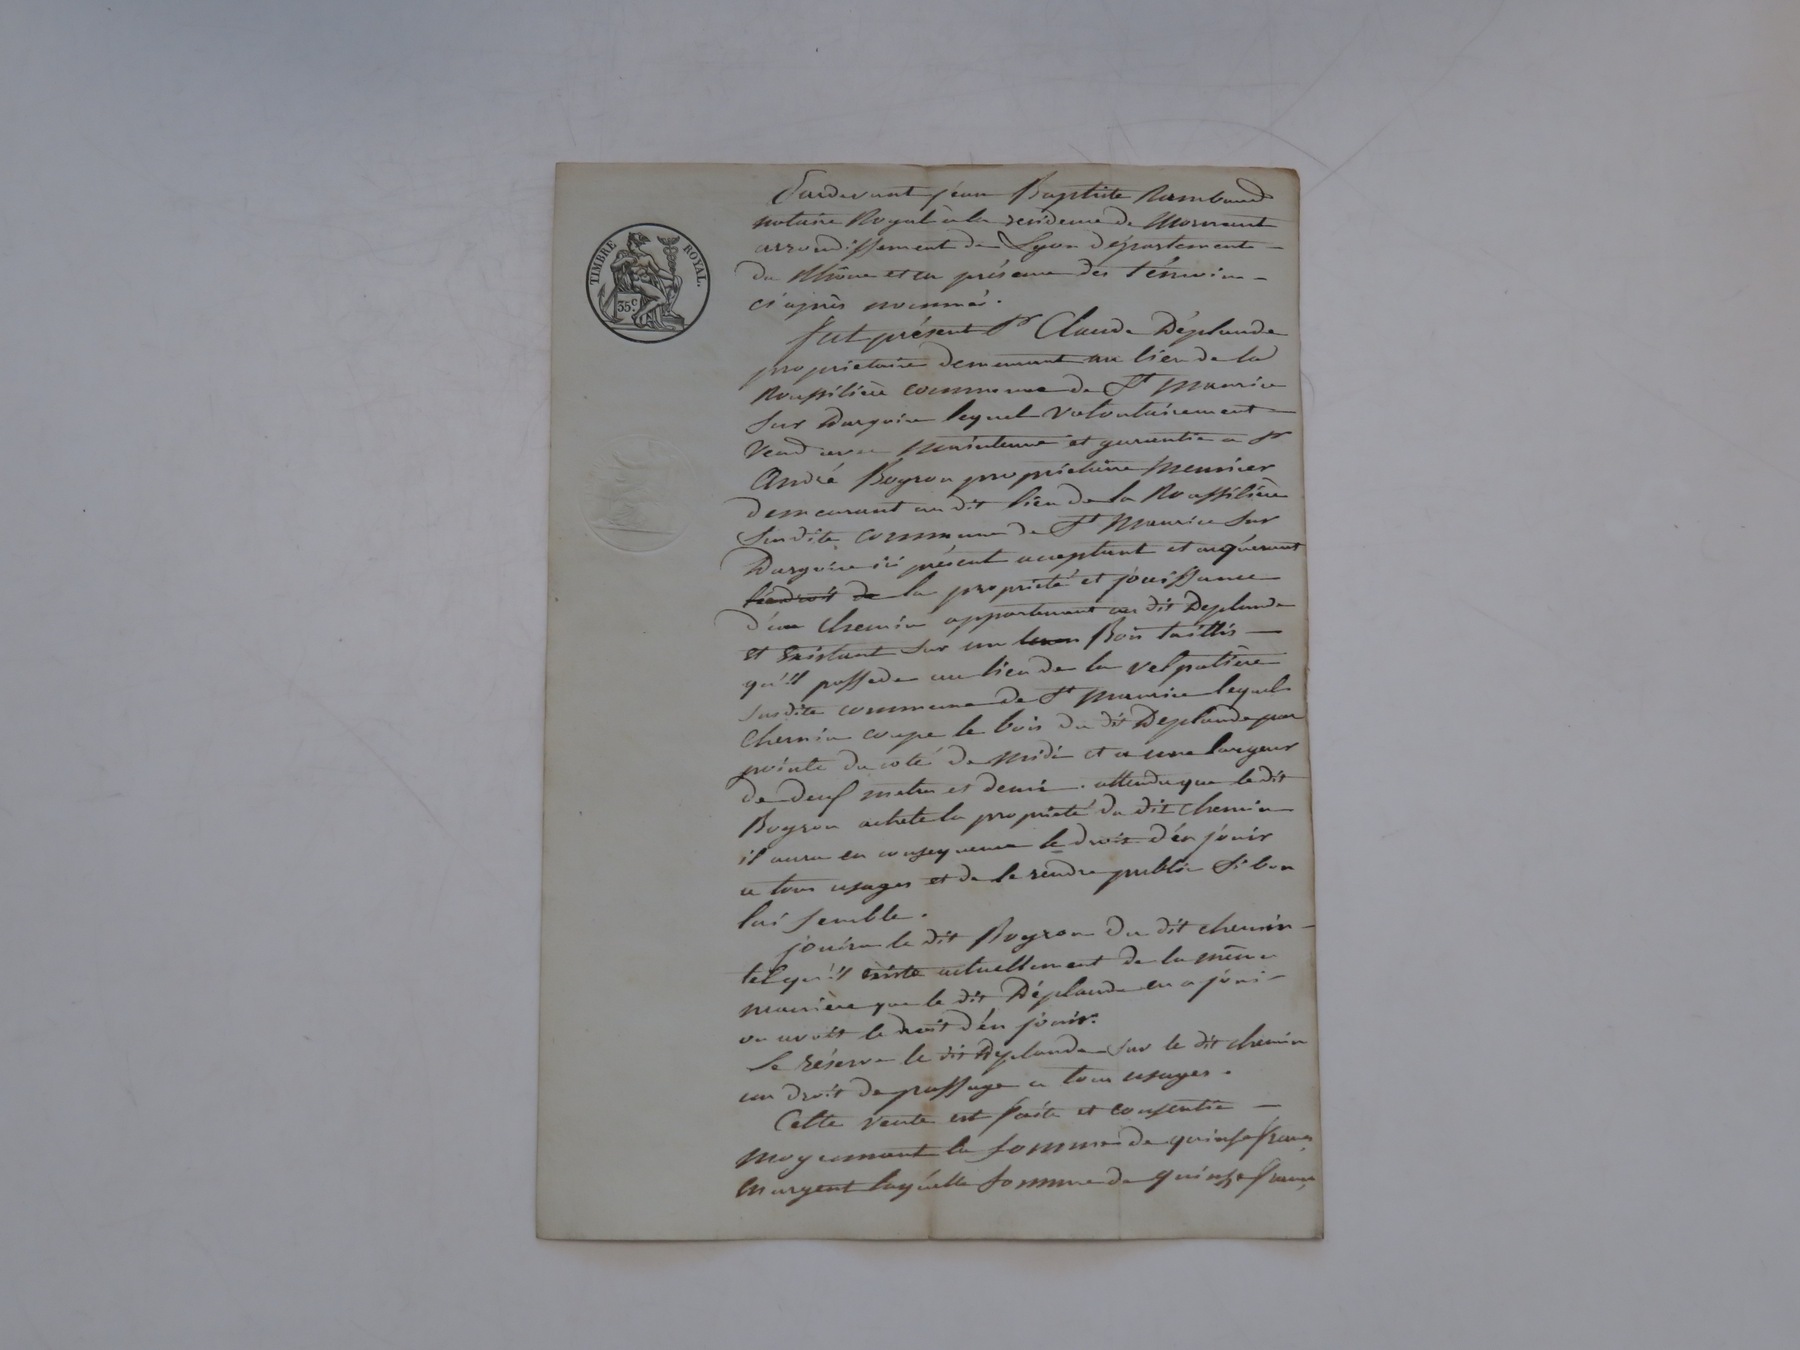 TIMBRE ROYAL.
35.c
Pardevant jean Baptiste Rambaud
notaire Royal à la residence de Mornant
arrondissement de Lyon département
du Rhône et en présence des témoins
ci après nommés.
fut présent Sr Claude Déplaude
proprietaire demeurant au lieu de la
Roussilière commune de St Maurice
sur Dargoire lequel volontairement
vend avec maintenue et garantie a Sr
André Boyron proprietaire meunier
demeurant au dit lieu de la Roussilière
susdite commune de St Maurice sur
Dargoire ici présent acceptant et acquérant
le droit de la proprieté et jouissance
d'un chemin appartenant au dit Deplaude
et existant sur un Bois taillis
qu'il possede au lieu de la
susdite commune de St Maurice lequel
chemin coupe le bois du dit Deplaude par
pointe du coté de midi et a une largeur
de deux metres et demi. attendu que le dit
Boyron achete la proprieté du dit chemin
il aura en consequence le droit d'en jouir
a tous usages et de le rendre public si bon
lui semble.
jouira le dit Boyron du dit chemin
tel qu'il existe actuellement de la même
maniere que le dit Déplaude en a joui
ou avoit le droit d'en jouir.
Se réserve le dit Deplaude sur le dit chemin
un droit de passage a tous usages.
Cette vente est faite et consentie
moyennant la somme de quinze francs
en argent laquelle somme de quinze francs